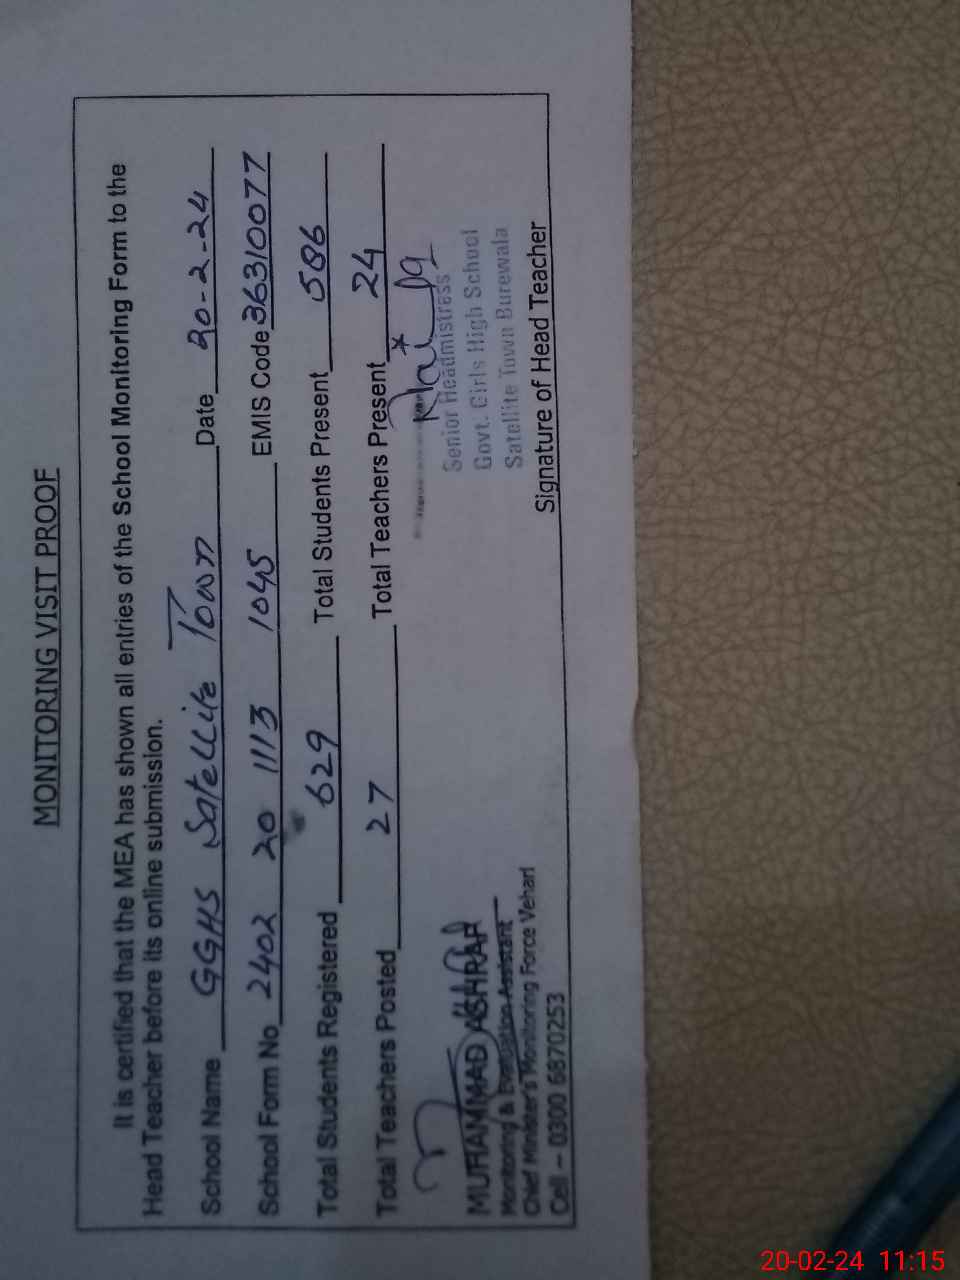 MONITORING VISIT PROOF
It is certified that the MEA has shown all entries of the School Monitoring Form to the
Head Teacher before its online submission.
School Name GGHS Satellite Town Date 20-2-24
School Form No 2402 20 1113 1045 EMIS Code 36310077
Total Students Registered 629 Total Students Present 586
Total Teachers Posted 27 Total Teachers Present 24
Senior Headmistress
Govt. Girls High School
Satellite Town Burewala
Signature of Head Teacher
MUHAMMAD ASHRAF
Monitoring & Evaluation Assistant
Chief Minister's Monitoring Force Vehari
Cell – 0300 6870253
20-02-24 11:15